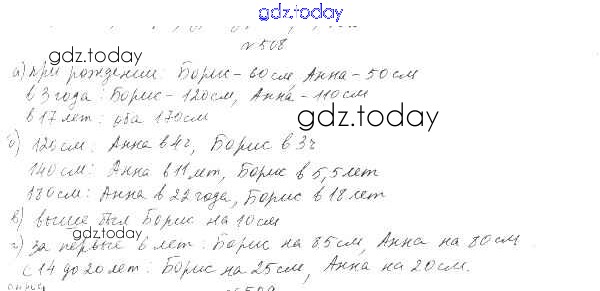 gdz.today
№508
gdz.today
а) при рождении: Борис - 60см, Анна - 50см
в 3 года: Борис - 120см, Анна - 110см
в 17 лет: оба 170см
gdz.today
б) 120см: Анна в 4г, Борис в 3г
140см: Анна в 11 лет, Борис в 5,5 лет
180см: Анна в 22 года, Борис в 18 лет
в) выше был Борис на 10см
gdz.today
г) за первые 6 лет: Борис на 85см, Анна на 80см
с 14 до 20 лет: Борис на 25см, Анна на 20см.